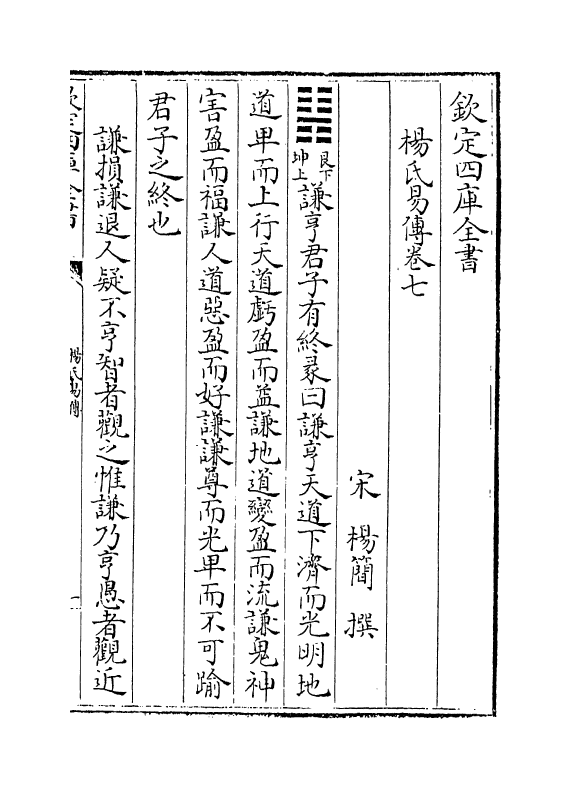 欽定四庫全書
楊氏易傳卷七
宋 楊簡 撰
䷎
艮下
坤上
謙亨君子有終彖曰謙亨天道下濟而光明地
道卑而上行天道虧盈而益謙地道變盈而流謙鬼神
害盈而福謙人道惡盈而好謙謙尊而光卑而不可踰
君子之終也
謙損謙退人疑不亨智者觀之惟謙乃亨愚者觀近
欽定四庫全書
楊氏易傳
一